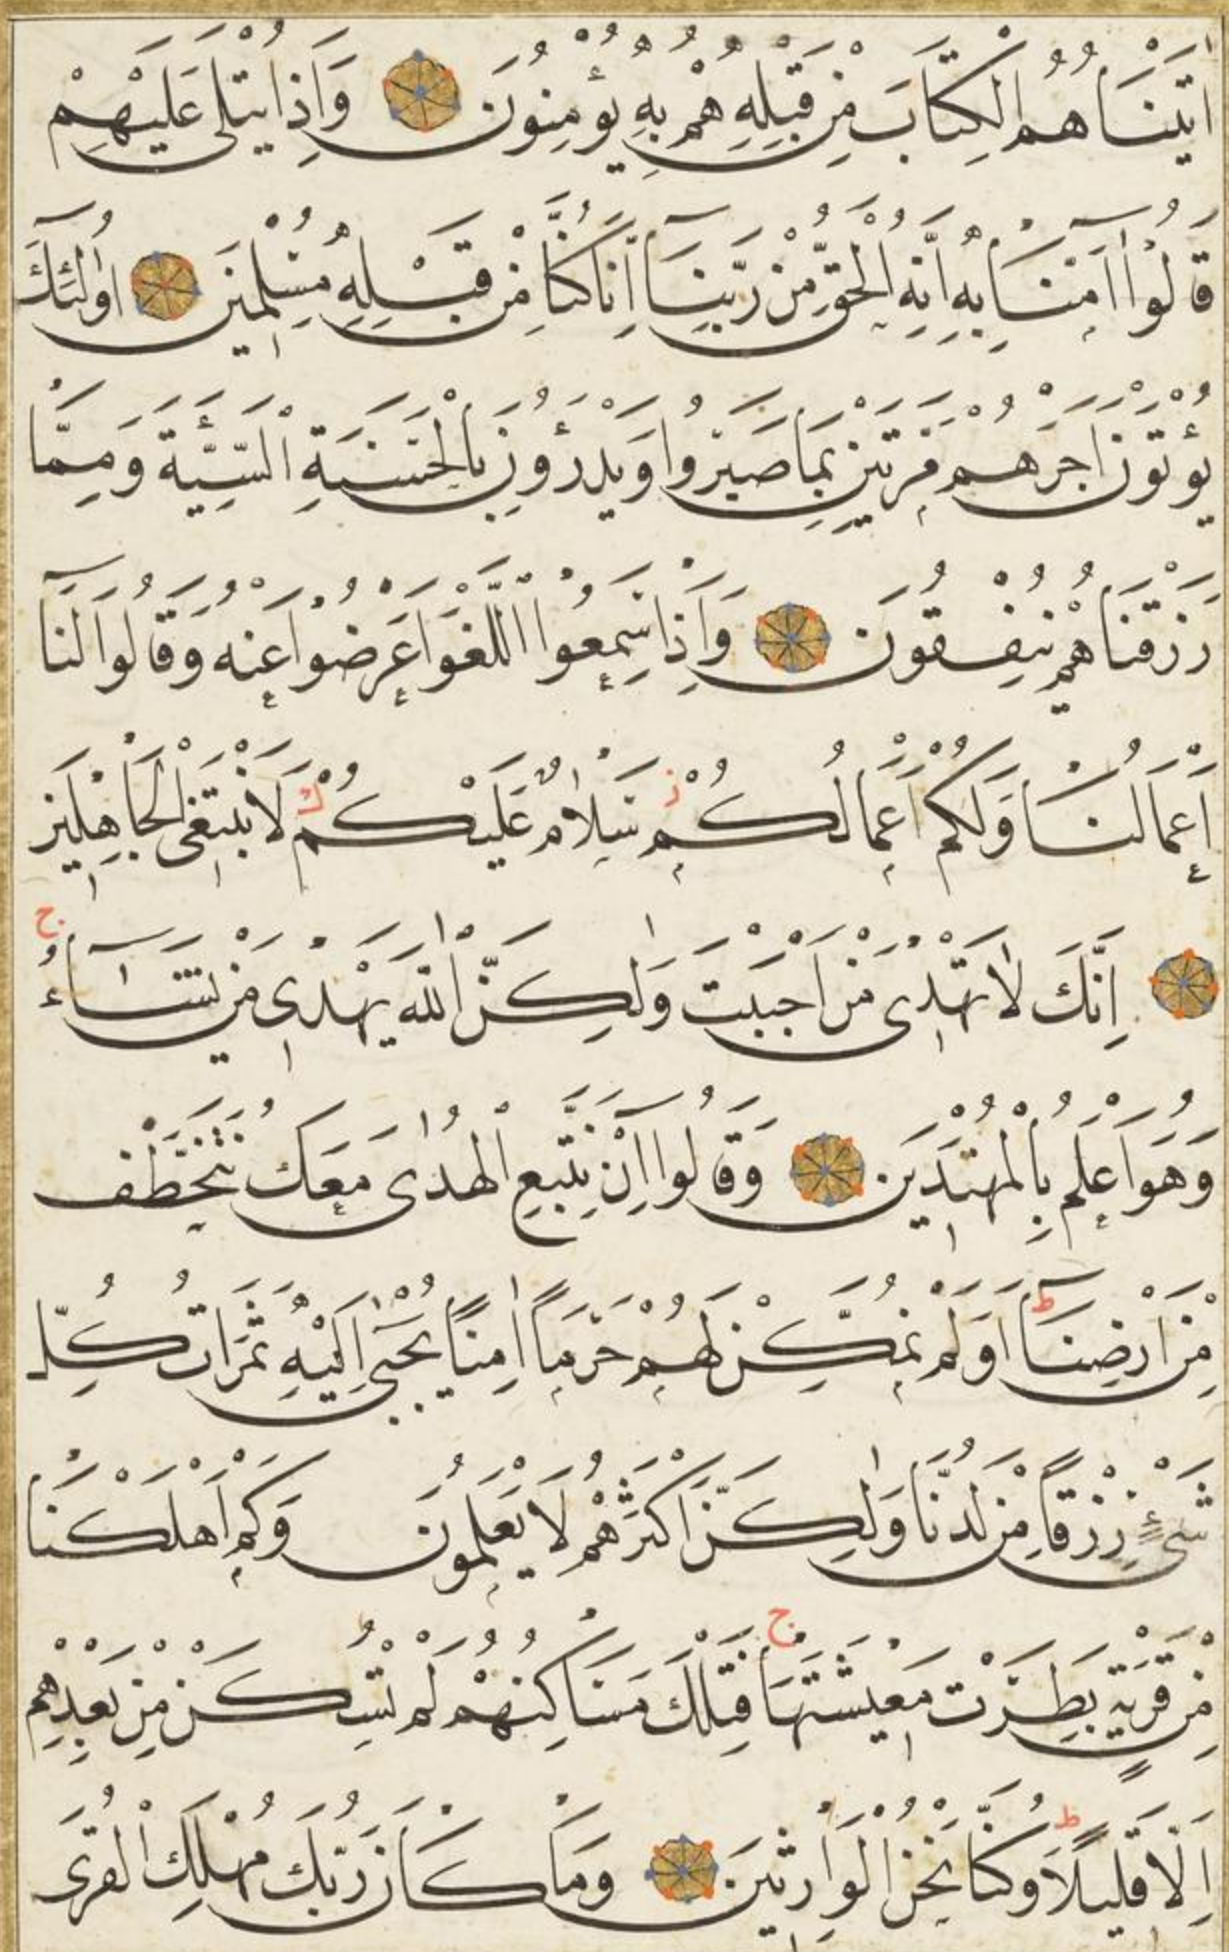 اٰتَيْنَاهُمُ الْكِتَابَ مِنْ قَبْلِهِ هُمْ بِهِ يُؤْمِنُونَ وَاِذَا يُتْلٰى عَلَيْهِمْ
قَالُوا اٰمَنَّا بِهِ اِنَّهُ الْحَقُّ مِنْ رَبِّنَآ اِنَّا كُنَّا مِنْ قَبْلِهِ مُسْلِمِينَ اُولٰٓئِكَ
يُؤْتَوْنَ اَجْرَهُمْ مَرَّتَيْنِ بِمَا صَبَرُوا وَيَدْرَؤُنَ بِالْحَسَنَةِ السَّيِّئَةَ وَمِمَّا
رَزَقْنَاهُمْ يُنْفِقُونَ وَاِذَا سَمِعُوا اللَّغْوَ اَعْرَضُوا عَنْهُ وَقَالُوا لَنَآ
اَعْمَالُنَا وَلَكُمْ اَعْمَالُكُمْ ز سَلَامٌ عَلَيْكُمْ ز لَا نَبْتَغِى الْجَاهِلِينَ
اِنَّكَ لَا تَهْدِى مَنْ اَحْبَبْتَ وَلٰكِنَّ اللّٰهَ يَهْدِى مَنْ يَشَآءُ ج
وَهُوَ اَعْلَمُ بِالْمُهْتَدِينَ وَقَالُوٓا اِنْ نَتَّبِعِ الْهُدٰى مَعَكَ نُتَخَطَّفْ
مِنْ اَرْضِنَا ط اَوَلَمْ نُمَكِّنْ لَهُمْ حَرَمًا اٰمِنًا يُجْبٰٓى اِلَيْهِ ثَمَرَاتُ كُلِّ
شَىْءٍ رِزْقًا مِنْ لَدُنَّا وَلٰكِنَّ اَكْثَرَهُمْ لَا يَعْلَمُونَ وَكَمْ اَهْلَكْنَا
مِنْ قَرْيَةٍ بَطِرَتْ مَعِيشَتَهَا ج فَتِلْكَ مَسَاكِنُهُمْ لَمْ تُسْكَنْ مِنْ بَعْدِهِمْ
اِلَّا قَلِيلًا ط وَكُنَّا نَحْنُ الْوَارِثِينَ وَمَا كَانَ رَبُّكَ مُهْلِكَ الْقُرٰى